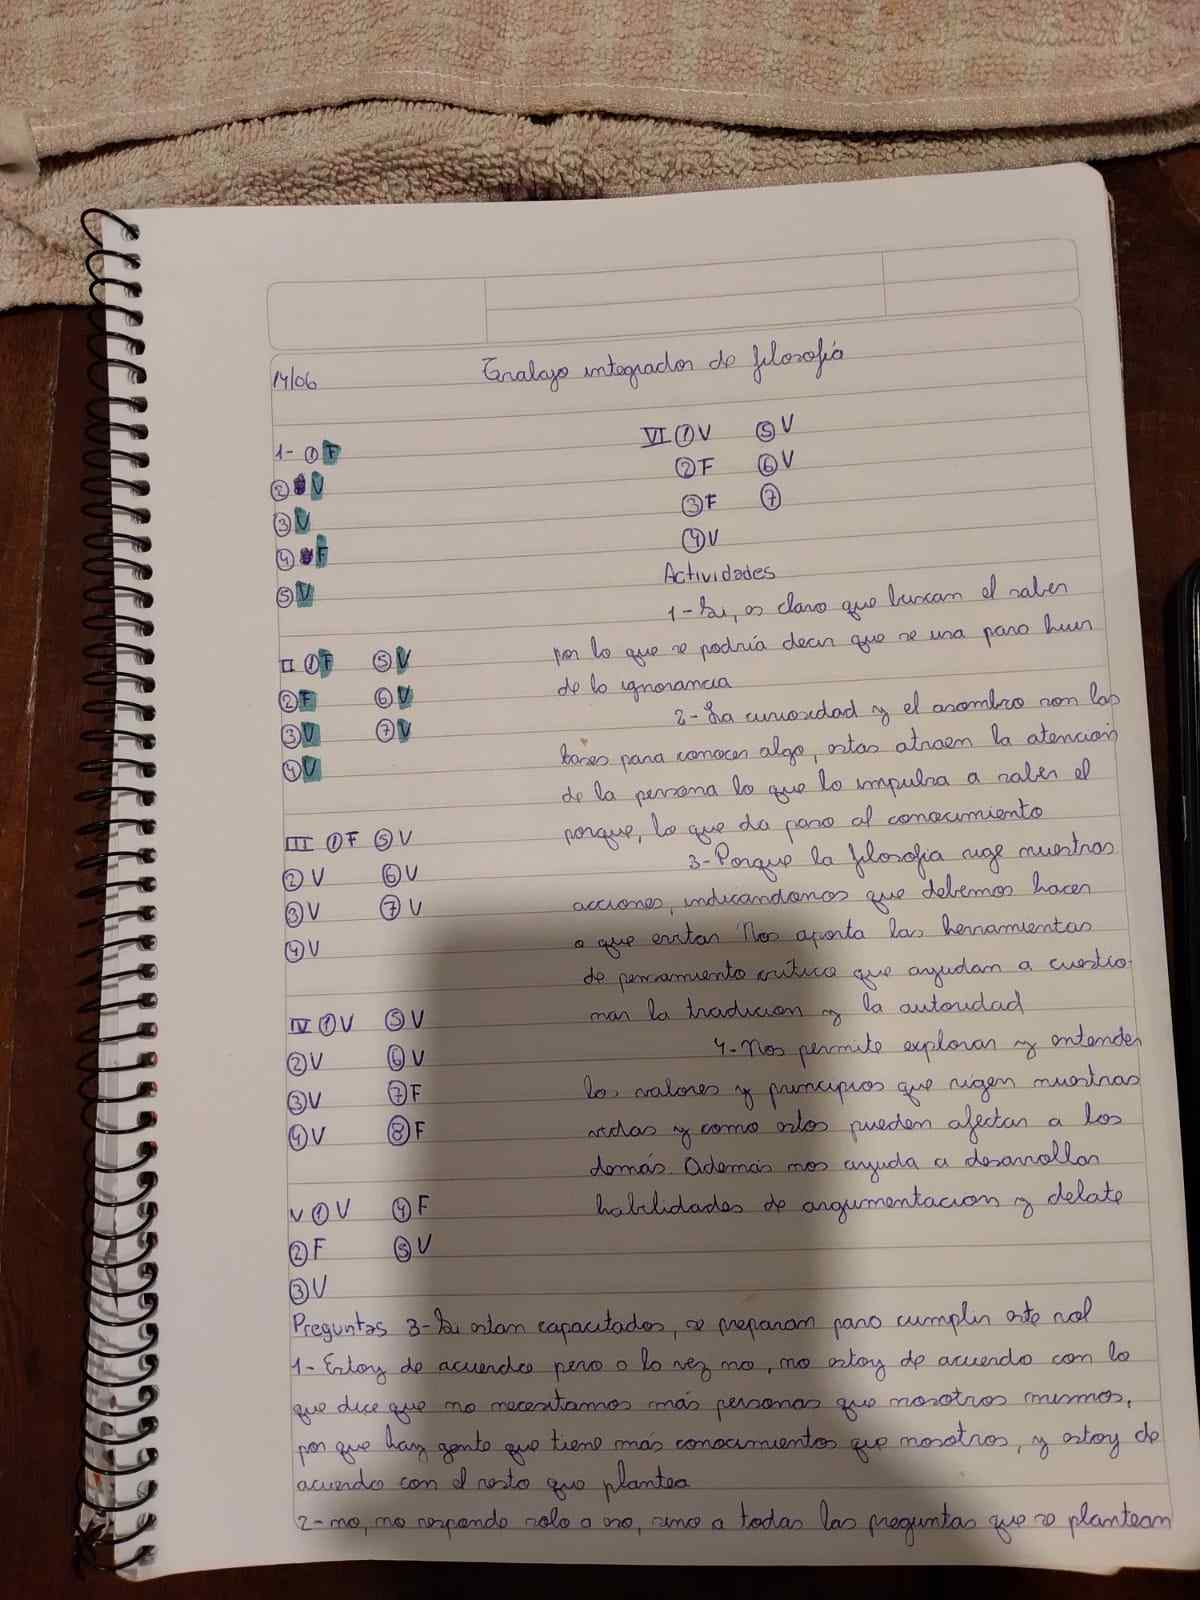 14/06 Trabajo integrador de filosofía
1- ① F
② V
③ V
④ F
⑤ V
II ① F ⑤ V
② F ⑥ V
③ V ⑦ V
④ V
III ① F ⑤ V
② V ⑥ V
③ V ⑦ V
④ V
IV ① V ⑤ V
② V ⑥ V
③ V ⑦ F
④ V ⑧ F
V ① V ④ F
② F ⑤ V
③ V
VI ① V ⑤ V
② F ⑥ V
③ F ⑦
④ V
Actividades
1- Si, es claro que buscan el saber
por lo que se podría decir que se usa para huir
de la ignorancia
2- La curiosidad y el asombro son las
bases para conocer algo, estas atraen la atención
de la persona lo que lo impulsa a saber el
porque, lo que da paso al conocimiento
3- Porque la filosofia rige nuestras
acciones, indicandonos que debemos hacer
o que evitar Nos aporta las herramientas
de pensamiento critico que ayudan a cuestio-
nar la tradicion y la autoridad
4- Nos permite explorar y entender
los valores y principios que rigen nuestras
vidas y como estos pueden afectar a los
demás. Además nos ayuda a desarrollar
habilidades de argumentacion y debate
Preguntas 3- Si estan capacitados, se preparan para cumplir este rol
1- Estoy de acuerdo pero a la vez no, no estoy de acuerdo con lo
que dice que no necesitamos más personas que nosotros mismos,
por que hay gente que tiene más conocimientos que nosotros, y estoy de
acuerdo con el resto que plantea
2- no, no responde solo a eso, sino a todas las preguntas que se plantean